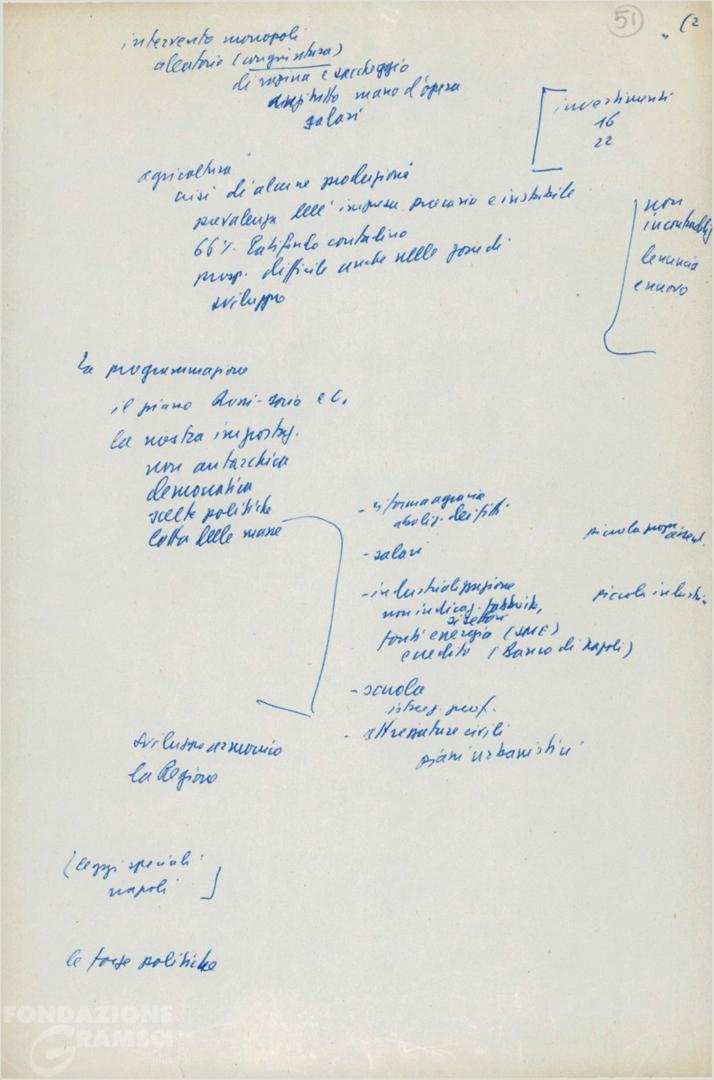 51
" (2
intervento monopoli
aleatorio (congiuntura)
di rapina e saccheggio
mano d'opera
salari
investimenti
16
22
agricoltura
crisi di alcune produzioni
prevalenza dell' impresa precaria e instabile
66% latifondo contadino
prosp. difficile anche nelle zone di
sviluppo
non
incontrollato
denuncia
e nuovo
la programmazione
il piano Rossi-Doria e C.
la nostra impostaz.
non autarchica
democratica
scelte politiche
lotta delle masse
- riforma agraria
aboliz. dei fitti
piccola propr.
- salari
- industrializzazione
piccola industria
non indicaz. fabbriche,
di settori
fonti energia (SME)
credito (Banco di Napoli)
- scuola
istruz. prof.
- attrezzature civili
piani urbanistici
sviluppo armonico
la Regione
(leggi speciali
napoli)
le forze politiche
FONDAZIONE
GRAMSCI